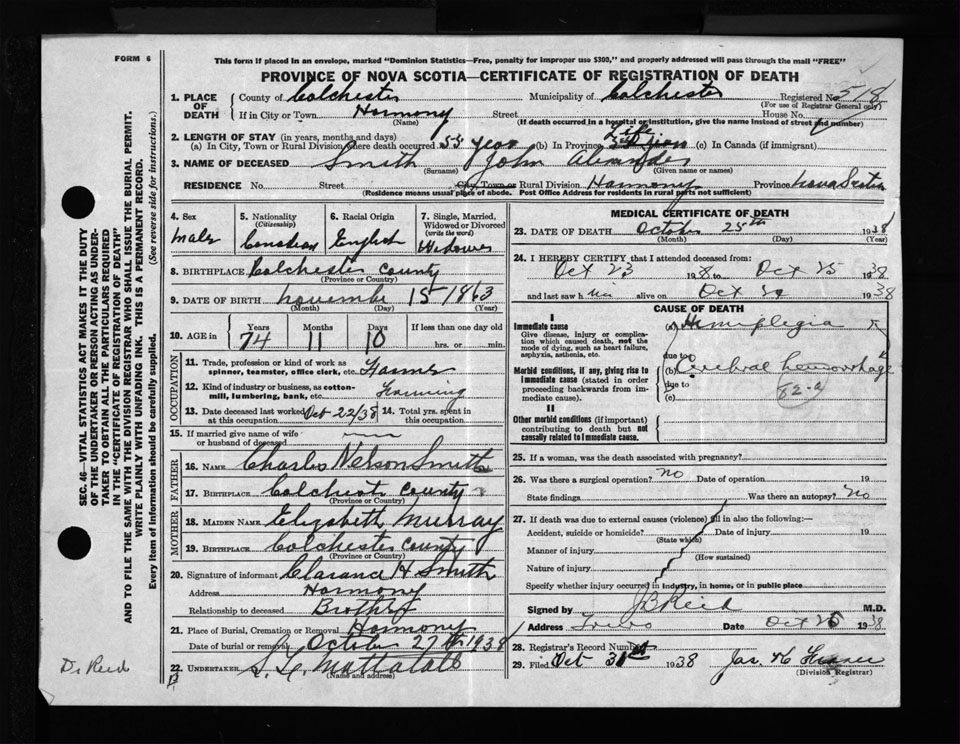 FORM 6
This form if placed in an envelope, marked "Dominion Statistics—Free, penalty for improper use $300," and properly addressed will pass through the mail "FREE"
PROVINCE OF NOVA SCOTIA—CERTIFICATE OF REGISTRATION OF DEATH
1. PLACE OF DEATH
County of Colchester Municipality of Colchester Registered No. 518
(For use of Registrar General only)
If in City or Town Harmony Street House No.
(Name) (If death occurred in a hospital or institution, give the name instead of street and number)
2. LENGTH OF STAY (in years, months and days)
(a) In City, Town or Rural Division where death occurred 55 year (b) In Province Life (c) In Canada (if immigrant)
3. NAME OF DECEASED Smith John Alexander
(Surname) (Given name or names)
RESIDENCE No. Street City, Town or Rural Division Harmony Province Nova Scotia
(Residence means usual place of abode. Post Office Address for residents in rural parts not sufficient)
SEC. 46—VITAL STATISTICS ACT MAKES IT THE DUTY
OF THE UNDERTAKER OR PERSON ACTING AS UNDER-
TAKER TO OBTAIN ALL THE PARTICULARS REQUIRED
IN THE "CERTIFICATE OF REGISTRATION OF DEATH"
AND TO FILE THE SAME WITH THE DIVISION REGISTRAR WHO SHALL ISSUE THE BURIAL PERMIT.
WRITE PLAINLY WITH UNFADING INK. THIS IS A PERMANENT RECORD.
Every item of information should be carefully supplied. (See reverse side for instructions.)
4. Sex
Male
5. Nationality
(Citizenship)
Canadian
6. Racial Origin
English
7. Single, Married, Widowed or Divorced
(write the word)
Widower
8. BIRTHPLACE Colchester County
(Province or Country)
9. DATE OF BIRTH November 15 1863
(Month) (Day) (Year)
10. AGE in Years Months Days If less than one day old
74 11 10 hrs. or min.
OCCUPATION
11. Trade, profession or kind of work as
spinner, teamster, office clerk, etc. Farmer
12. Kind of industry or business, as cotton-
mill, lumbering, bank, etc. Farming
13. Date deceased last worked Oct 22/38
at this occupation
14. Total yrs. spent in
this occupation
15. If married give name of wife
or husband of deceased
FATHER
16. NAME Charles Nelson Smith
17. BIRTHPLACE Colchester County
(Province or Country)
MOTHER
18. MAIDEN NAME Elizabeth Murray
19. BIRTHPLACE Colchester County
(Province or Country)
20. Signature of informant Clarence H Smith
Address Harmony
Relationship to deceased Brother
21. Place of Burial, Cremation or Removal Harmony
Date of burial or removal October 27th 1938
22. UNDERTAKER
(Name and address)
Dr Reid
MEDICAL CERTIFICATE OF DEATH
23. DATE OF DEATH October 25th 1938
(Month) (Day) (Year)
24. I HEREBY CERTIFY that I attended deceased from:
Oct 23 1938 to Oct 25 1938
and last saw him alive on Oct 1938
CAUSE OF DEATH
I
Immediate cause
Give disease, injury or complication which caused death, not the mode of dying, such as heart failure, asphyxia, asthenia, etc.
(a) Hemiplegia
due to
Morbid conditions, if any, giving rise to immediate cause (stated in order proceeding backwards from immediate cause).
(b) Cerebral hemorrhage
due to 82-a
(c)
II
Other morbid conditions (if important) contributing to death but not causally related to immediate cause.
25. If a woman, was the death associated with pregnancy?
26. Was there a surgical operation? no Date of operation 19
State findings Was there an autopsy? No
27. If death was due to external causes (violence) fill in also the following:—
Accident, suicide or homicide? Date of injury 19
(State which)
Manner of injury
(How sustained)
Nature of injury
Specify whether injury occurred in industry, in home, or in public place
Signed by J B Reid M.D.
Address Truro Date Oct 26 1938
28. Registrar's Record Number
29. Filed Oct 31st 1938 Jas. K
(Division Registrar)